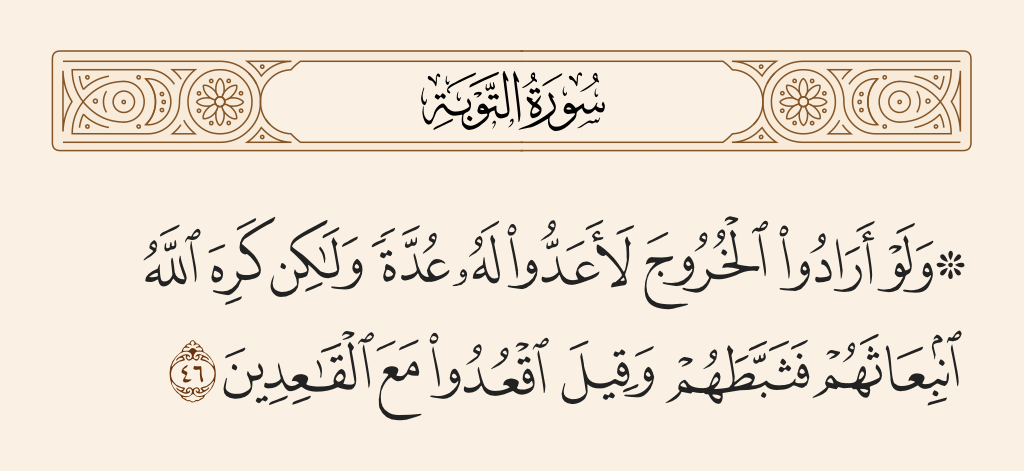 سُورَةُ التَّوْبَةِ
۞وَلَوْ أَرَادُوا۟ ٱلْخُرُوجَ لَأَعَدُّوا۟ لَهُۥ عُدَّةً وَلَٰكِن كَرِهَ ٱللَّهُ
ٱنۢبِعَاثَهُمْ فَثَبَّطَهُمْ وَقِيلَ ٱقْعُدُوا۟ مَعَ ٱلْقَٰعِدِينَ ٤٦